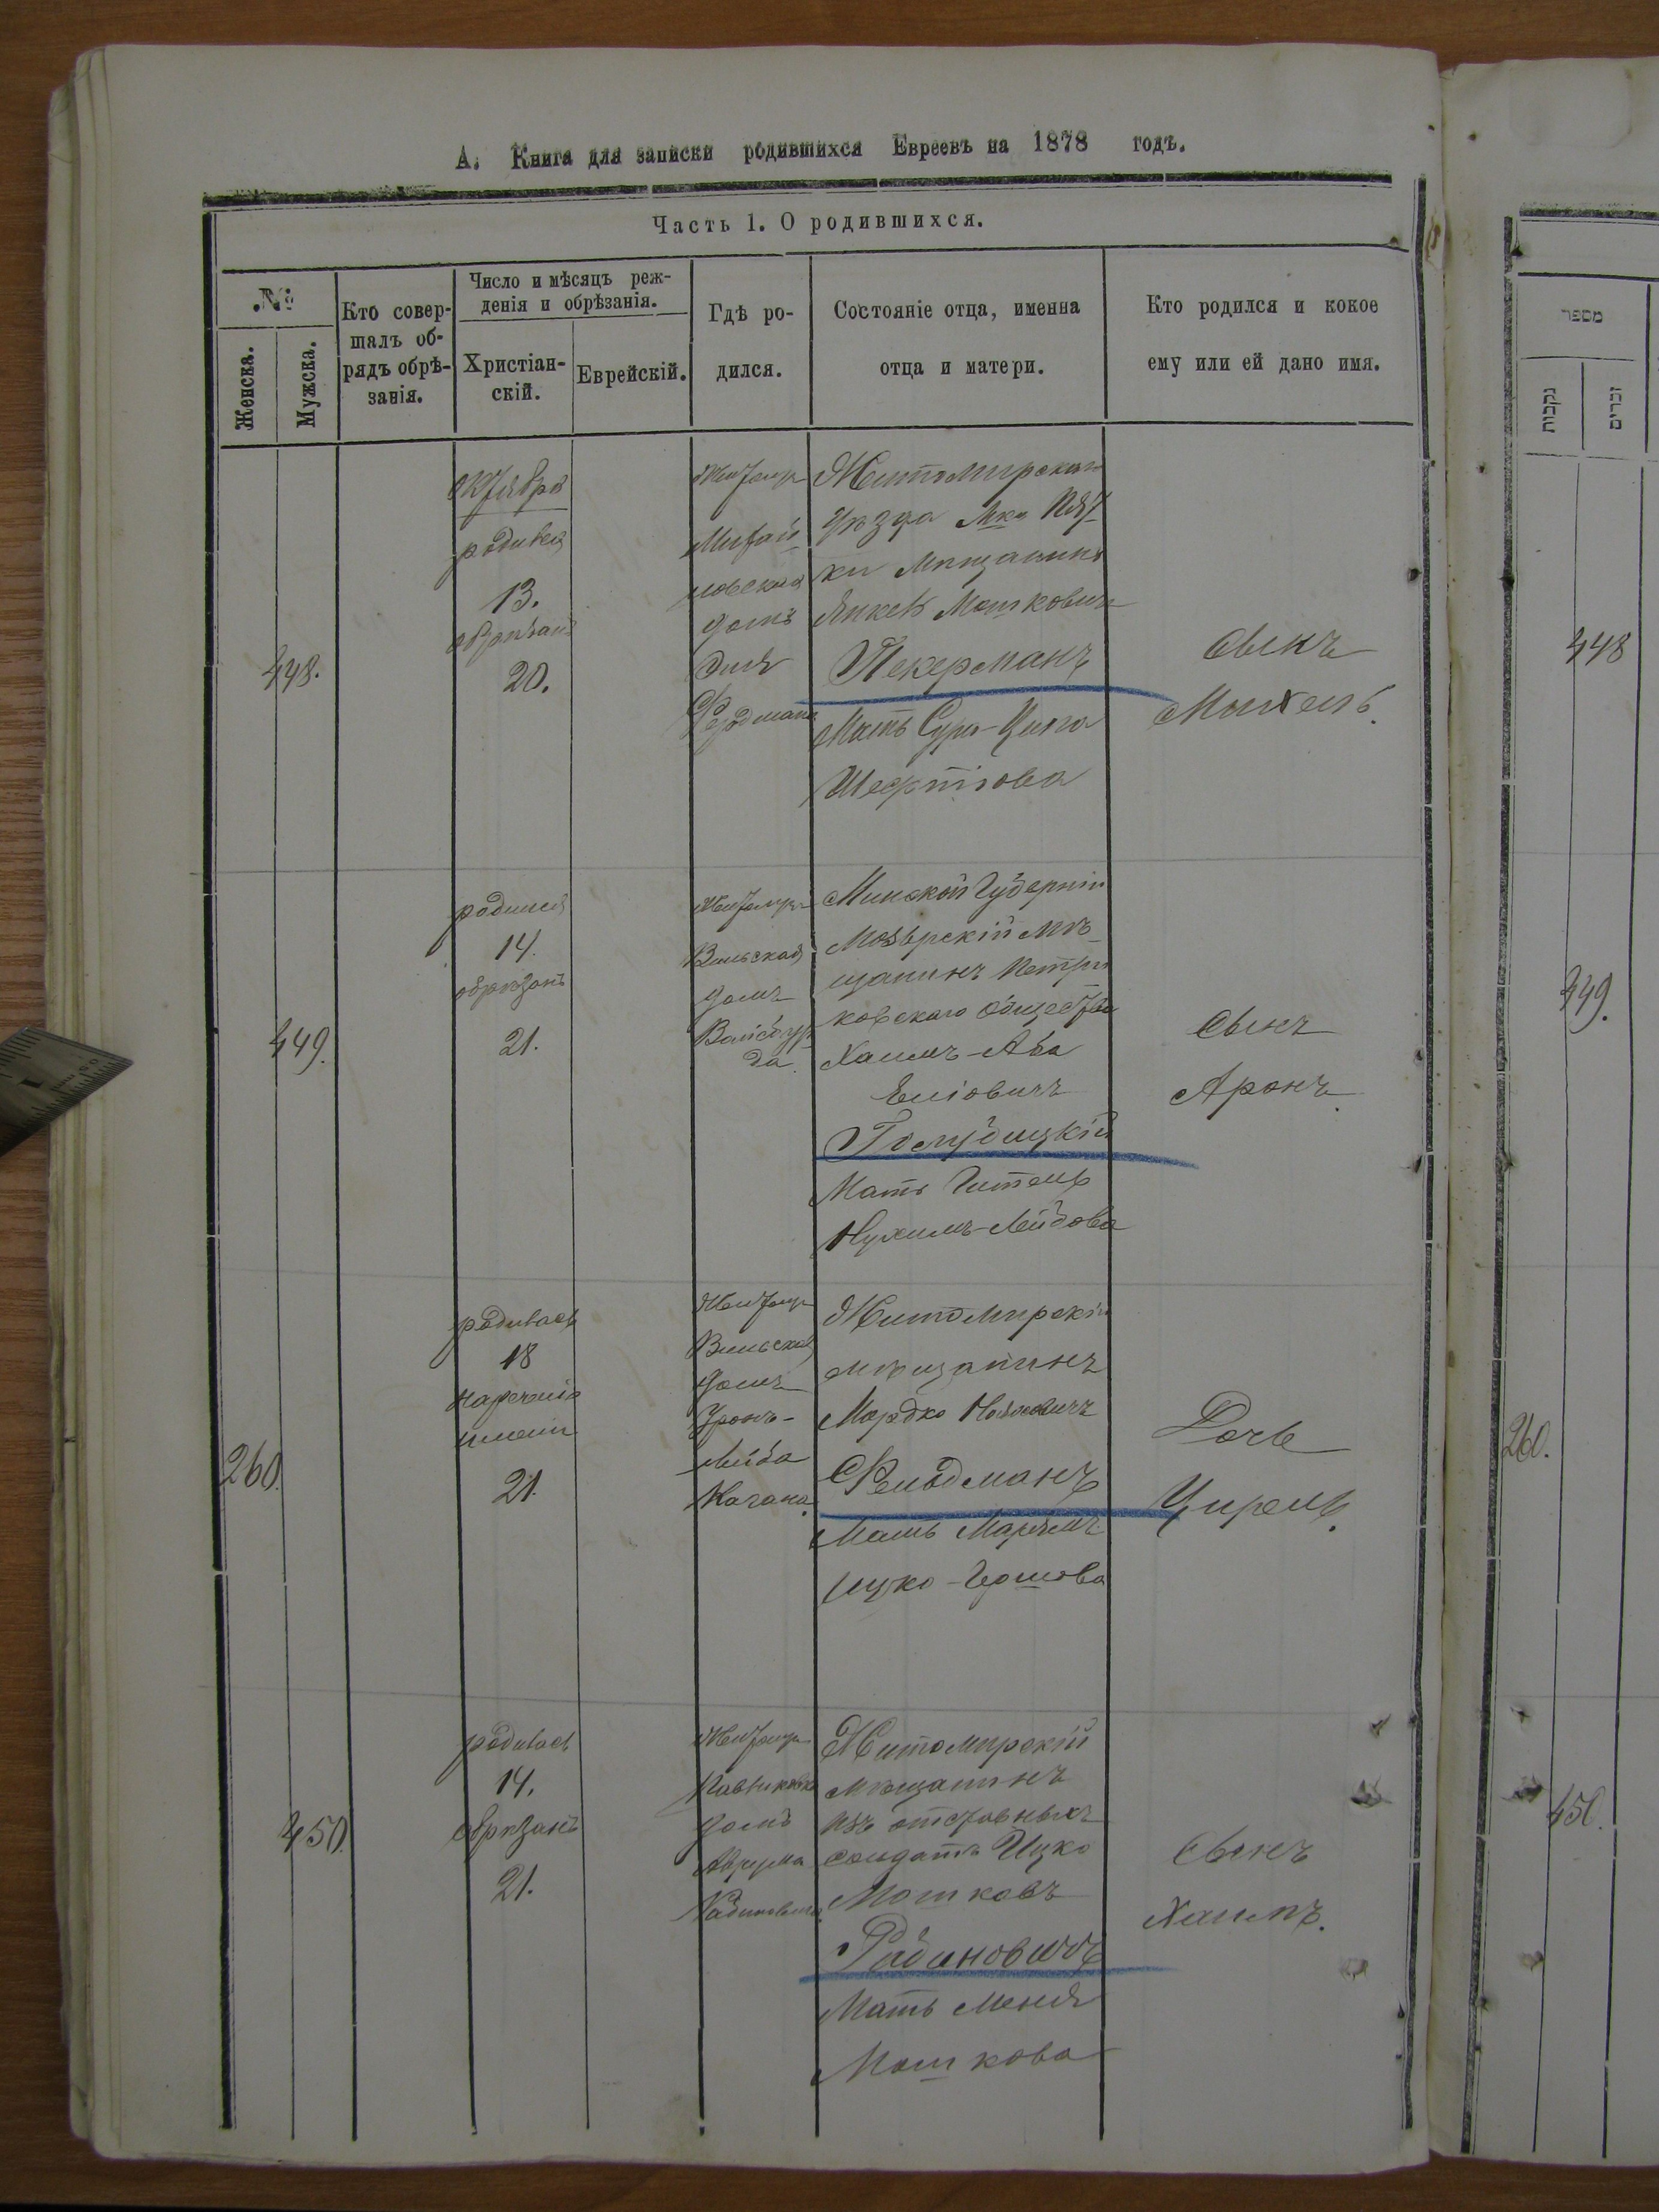 А. Книга для записки родившихся Евреевъ на 1878 годъ.
Часть 1. О родившихся.
№
Женска.
Мужска.
Кто совер-
шалъ об-
рядъ обрѣ-
занія.
Число и мѣсяцъ реж-
денія и обрѣзанія.
Христіан-
скій.
Еврейскій.
Гдѣ ро-
дился.
Состояніе отца, именна
отца и матери.
Кто родился и кокое
ему или ей дано имя.
448.
Октября
родился
13.
обрѣзанъ
20.
Житомиръ
Михай
ловская
домъ
Фельдмана
Житомирскаго
уѣзда Мка
ки мѣщанинъ
Янкель Мошковичъ
Пекерманъ
Мать Сура-Ципа
Шефтіова
Сынъ
Михель.
449.
родился
14.
обрѣзанъ
21.
Житомиръ
Вильская
домъ
Минской Губерніи
Мозырскій мѣ-
щанинъ Петри
ковскаго общества
Хаимъ-Аба
Еліовичъ
Голубицкій
Мать Гитель
Нухимъ-Лейбова
Сынъ
Аронъ.
260.
родилась
18
нареченіе
имени
21.
Житомиръ
Вильская
домъ
Лейба
Кагана
Житомирскій
мѣщанинъ
Мордко
Фельдманъ
Мать Марьямъ
Ицко-Гершова
Дочь
Цирель.
450.
родился
14.
обрѣзанъ
21.
Житомиръ
домъ
Аврума
Рабиновича
Житомирскій
мѣщанинъ
изъ отставныхъ
солдатъ Ицко
Мошковъ
Рабиновичъ
Мать Меня
Мошкова
Сынъ
Хаимъ.
מספר
נקבות
זכרים
448
449.
260.
450.